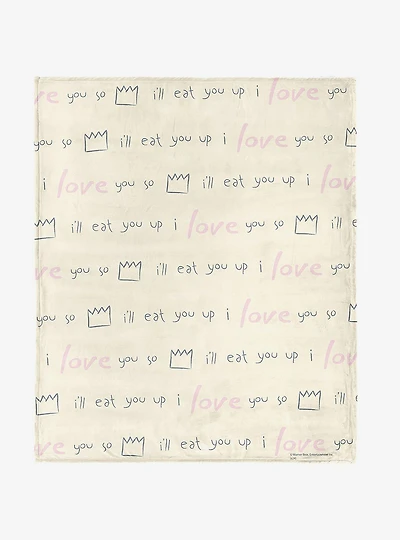 ve you so i'll eat you up i love you
you so i'll eat you up i love you so
i love you so i'll eat you up i lov
i'll eat you up i love you so i'll e
ve you so i'll eat you up i love you
you so i'll eat you up i love you so
i love you so i'll eat you up i lov
i'll eat you up i love you so i'll
ve you so i'll eat you up i love you
© Warner Bros. Entertainment Inc.